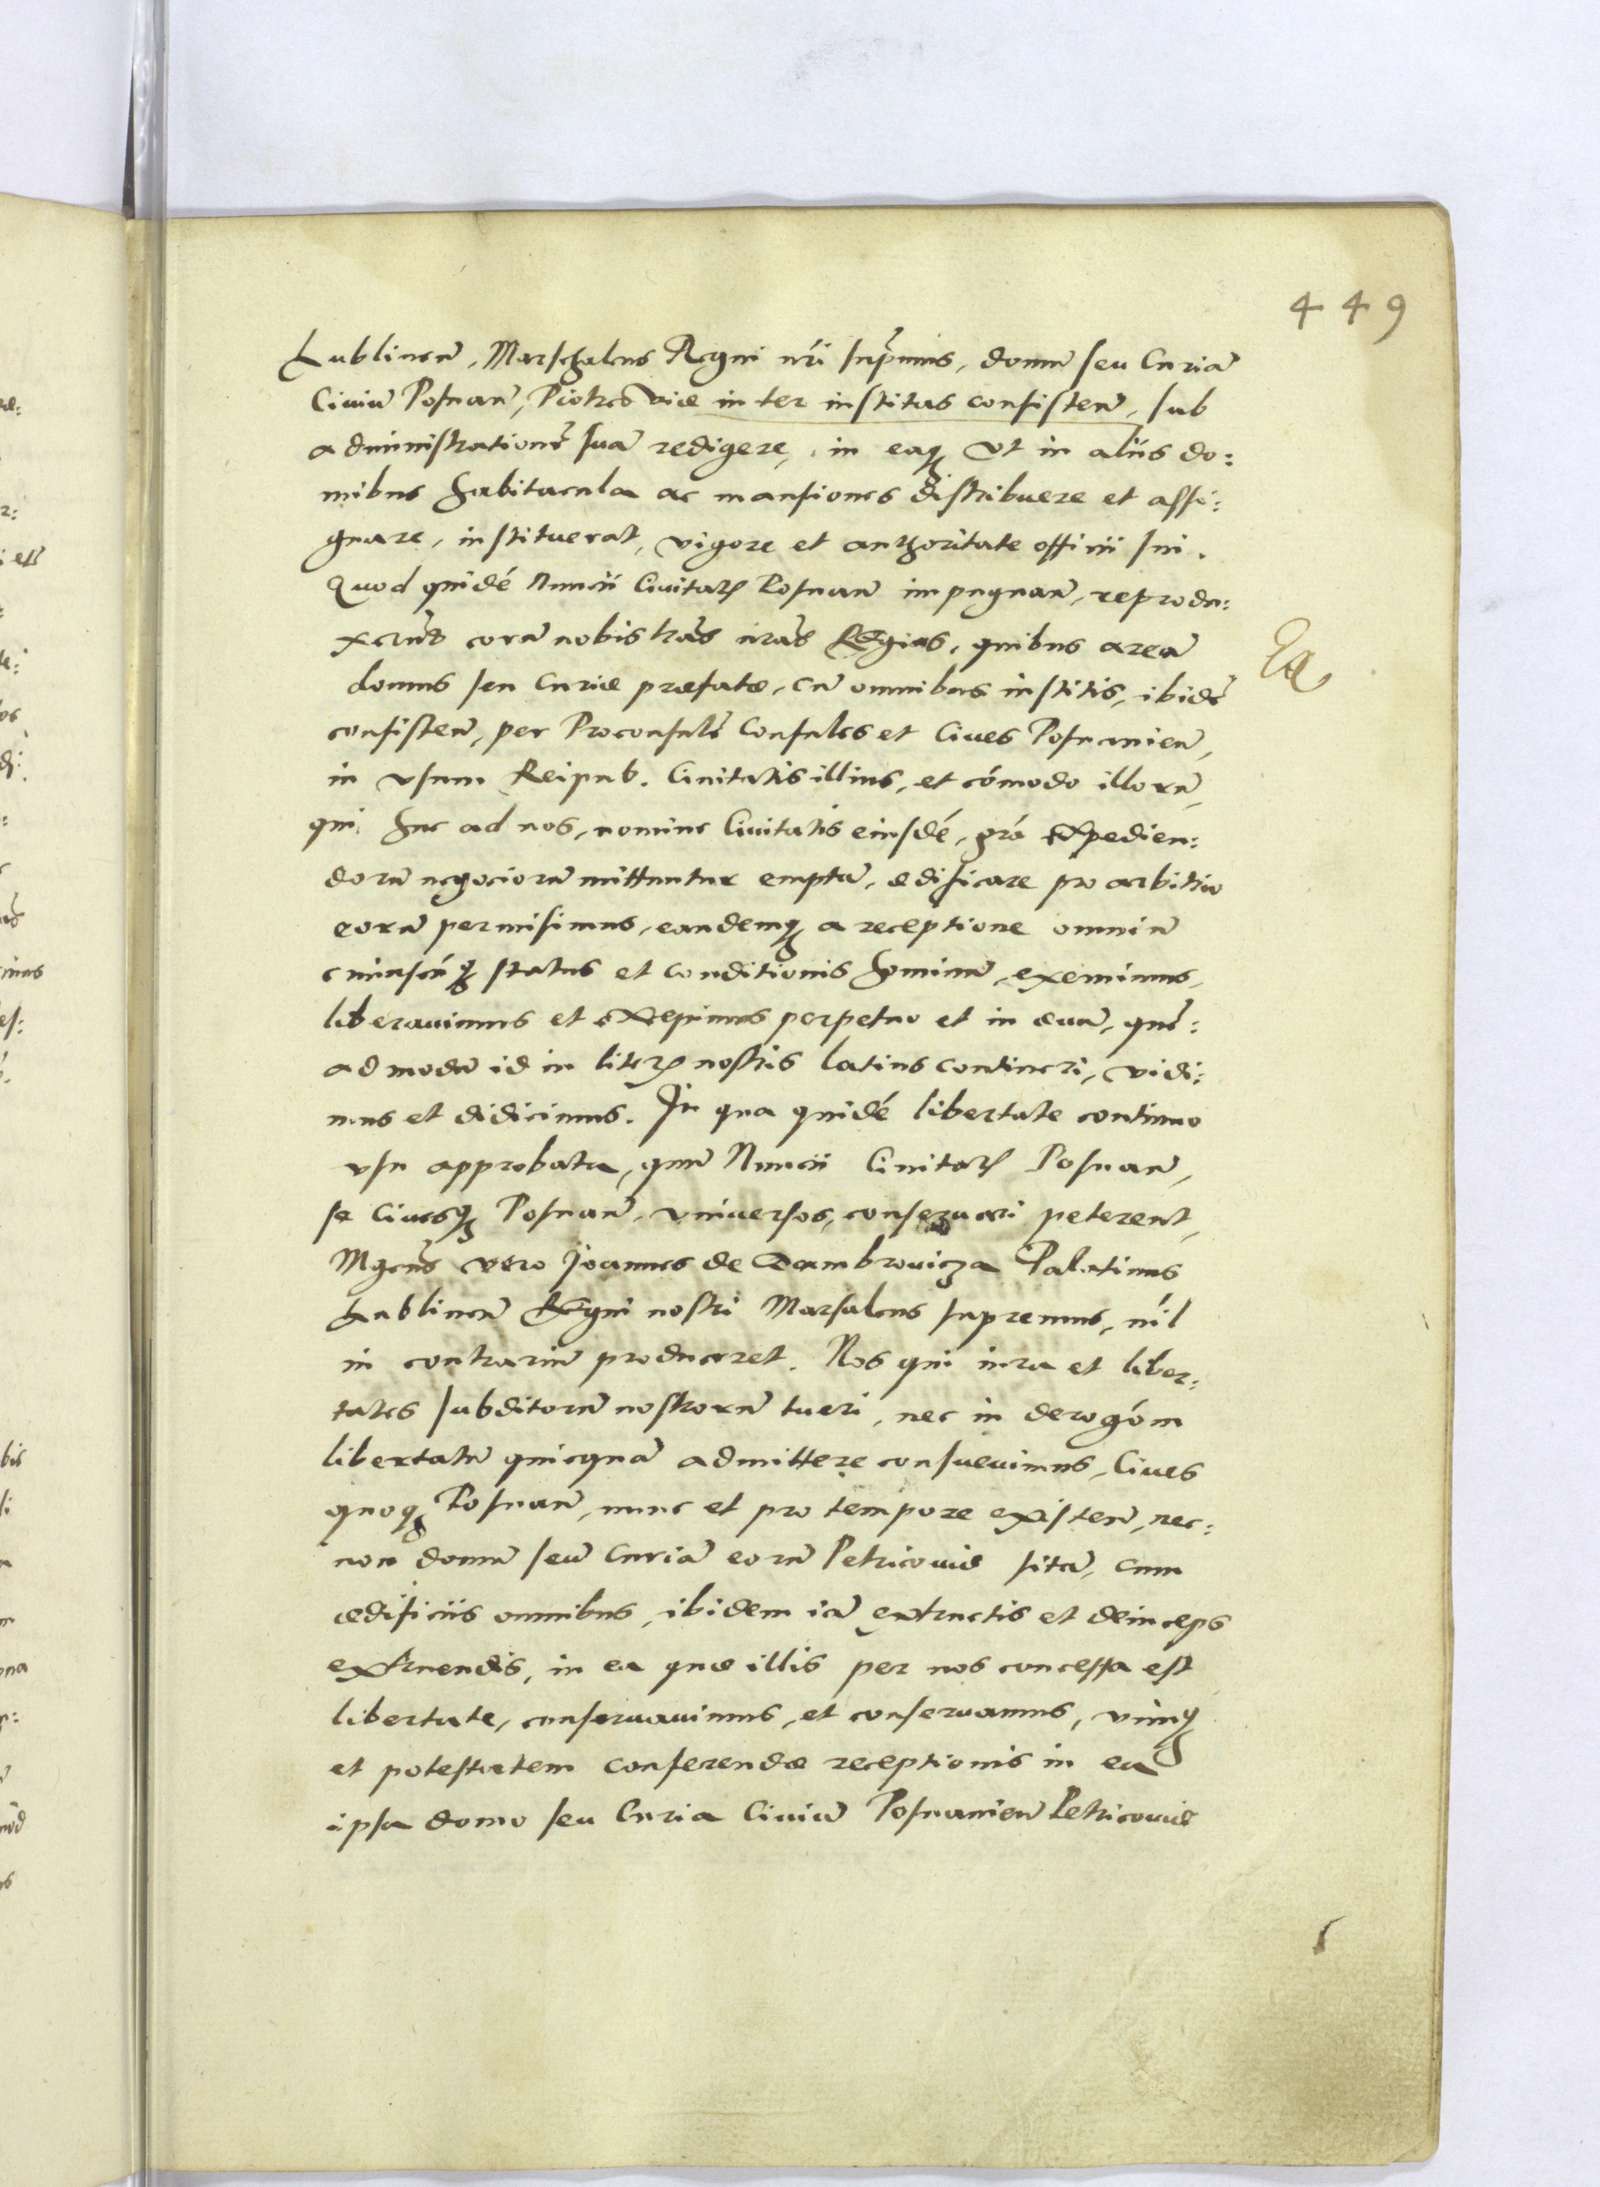 449
Lublinen̄, Marschalcus Regni nr̄i supremus, domū seu Curiā
Civiū Posnan̄, Piotrcoviæ inter institas consisten̄, sub
administrationē suā redigere, in eaq̨ ut in aliis do:
mibus habitacula ac mansiones distribuere et assi:
gnare, instituerat, vigore et authoritate officii sui.
Quod quidē Nuncii Civitatꝭ Posnan̄ impugnan̄, reprodu:
xerūt corā nobis lrās nrās Regias, quibus areā
domus seu Curiæ præfatæ, cū omnibus institis, ibidē
consisten̄, per Proconsulē Consules et Cives Posnanien̄,
in usum Reipub. Civitatis illius, et cōmodo illorū,
qui huc ad nos, nomine Civitatis eiusdē, grā expedien:
dorū negociorū mittuntur emptā, ædificare pro arbitrio
eorū permisimus, eandemq̨ a receptione omniū
cuiuscūq̨ status et conditionis hominū, exemimus,
liberavimus et excepimus perpetuo et in ævū, quē:
admodū id in literꝭ nostris latius contineri, vidi:
mus et didicimus. In qua quidē libertate continuo
usu approbata, quū Nuncii Civitatꝭ Posnan̄,
se Civesq̨ Posnan̄, universos, conservari peterent,
Mgcus vero Joannes de Dambrovicza Palatinus
Lublinen̄ Regni nostri Marsalcus supremus, nil
in contrariū produceret. Nos qui iura et liber:
tates subditorū nostrorū tueri, nec in derogōm
libertatū quicquā admittere consuevimus, Cives
quoq̨ Posnan̄, nunc et pro tempore existen̄, nec:
non domū seu Curiā eorū Petricoviæ sitā, cum
ædificiis omnibus, ibidem iā extructis et deinceps
extruendis, in ea quæ illis per nos concessa est
libertate, conservavimus, et conservamus, vimq̨
et potestatem conferendæ receptionis in ea
ipsa domo seu Curia Civiū Posnanien̄ Petricoviæ